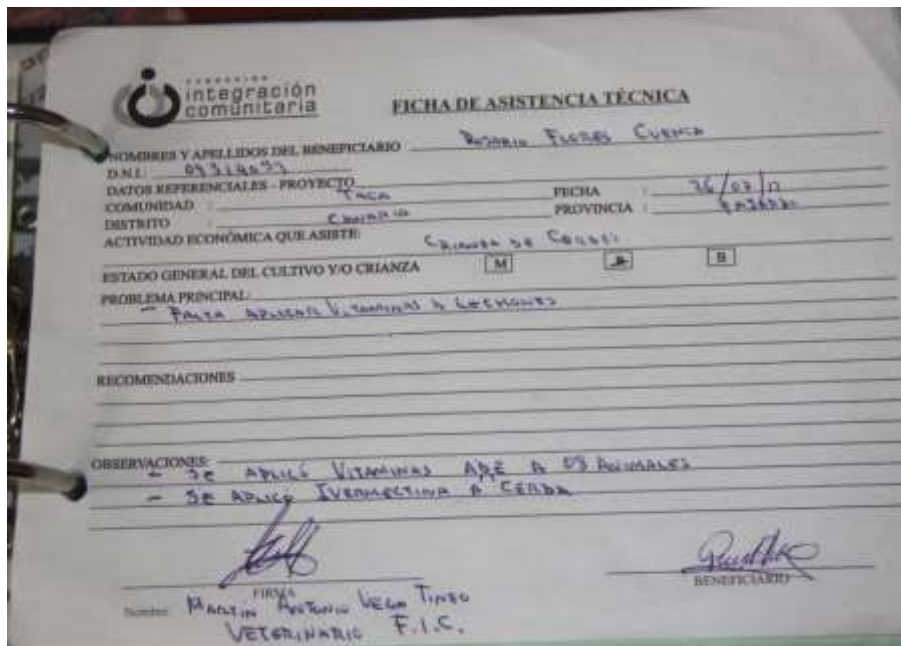 FUNDACION
integración
comunitaria
FICHA DE ASISTENCIA TÉCNICA
NOMBRES Y APELLIDOS DEL BENEFICIARIO Rosario Flores Cuenca
D.N.I.:
DATOS REFERENCIALES - PROYECTO
COMUNIDAD : TACA FECHA : 26/07/17
DISTRITO : CANARIA PROVINCIA : FAJARDO
ACTIVIDAD ECONÓMICA QUE ASISTE: CRIANZA DE CERDOS
ESTADO GENERAL DEL CULTIVO Y/O CRIANZA M R B
PROBLEMA PRINCIPAL:
- FALTA APLICAR VITAMINAS A LECHONES
RECOMENDACIONES
OBSERVACIONES:
- SE APLICÓ VITAMINAS ADE A 08 ANIMALES
- SE APLICÓ IVERMECTINA A CERDA
FIRMA
BENEFICIARIO
Nombre: MARTIN ANTONIO VEGA TINEO
VETERINARIO F.I.C.